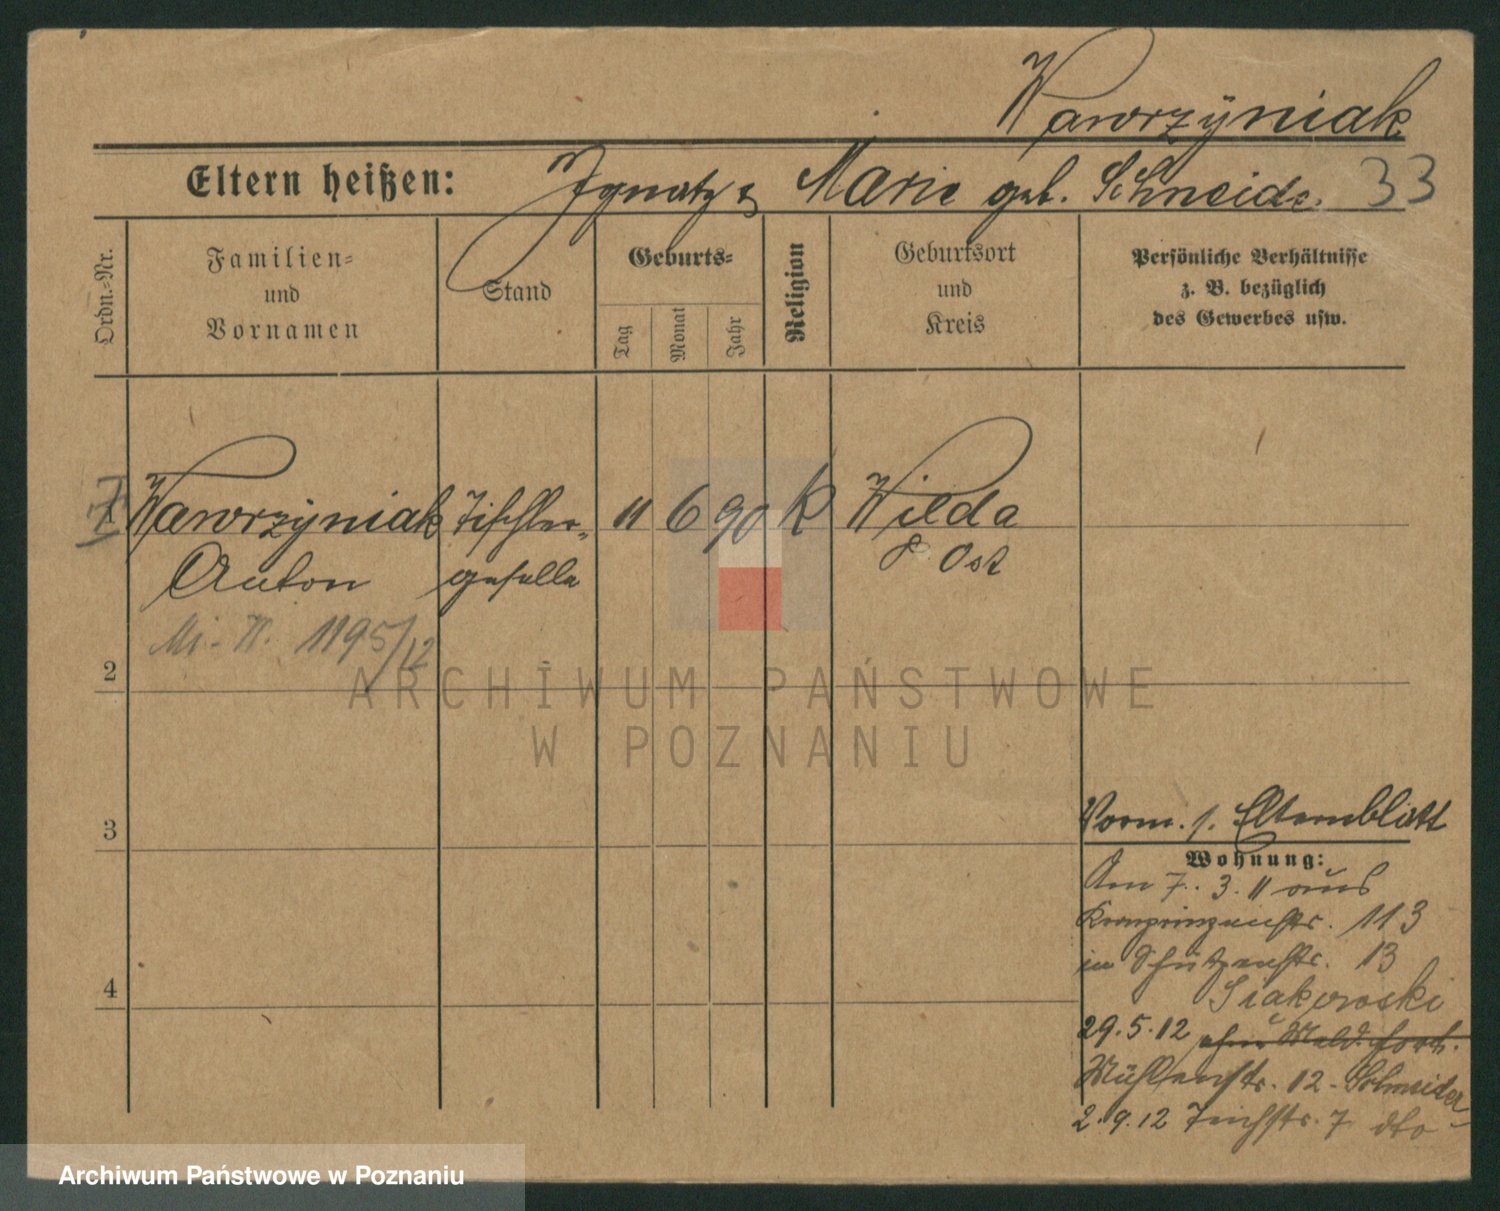 Wawrzÿniak
Eltern heißen: Ignatz & Marie geb. Schneider 33
Ordn.-Nr.
Familien-
und
Vornamen
Stand
Geburts-
Tag
Monat
Jahr
Religion
Geburtsort
und
Kreis
Persönliche Verhältnisse
z. B. bezüglich
des Gewerbes usw.
1 Wawrzÿniak Tischler- 11 6 90 K Wilda
Anton geselle P. Ost
Mi. W. 1195/12
2
ARCHIWUM PAŃSTWOWE
W POZNANIU
3
4
Vorm. s. Elternblatt
Wohnung:
Am 7. 3. 11 aus
Kronprinzenstr. 113
in Schützenstr. 13
Siakowski
29.5.12 ohne Meld. fort.
Mühlenstr. 12 - Schneider
2.9.12 Teichstr. 7 dto
Archiwum Państwowe w Poznaniu